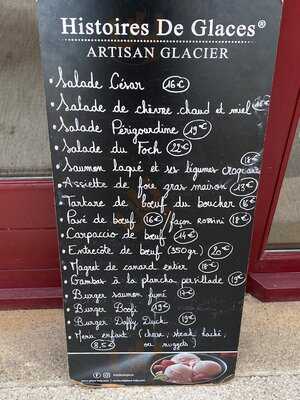 Histoires De Glaces®
ARTISAN GLACIER
• Salade César 16€
• Salade de chèvre chaud et miel
• Salade Périgourdine 19€
• Salade du Foch 22€
• Saumon laqué et ses légumes craquants 18€
• Assiette de foie gras maison 19€
• Tartare de bœuf du boucher
• Pavé de bœuf 16€ façon Rossini 18€
• Carpaccio de bœuf 14€
• Entrecôte de bœuf (350gr) 20€
• Magret de canard entier 18€
• Gambas à la plancha persillade 19€
• Burger saumon fumé 17€
• Burger Boofi 19€
• Burger Daffy Duck 19€
• Menu enfant (cheese, steak haché,
8,5€ ou nuggets)